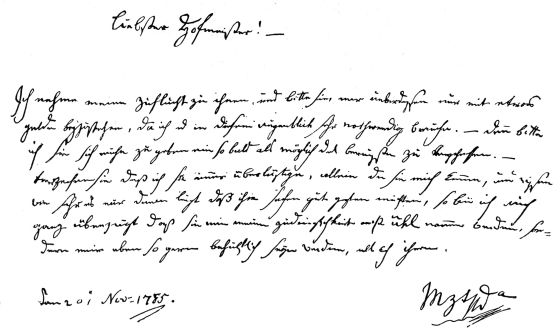 liebster Hofmeister! —
Ich nehme meine Zuflucht zu ihnen, und bitte sie, mir unterdessen nur mit etwas
gelde beyzustehen, da ich es in diesem augenblick sehr nothwendig brauche. — dann bitte
ich sie sich mühe zu geben mir so bald als möglich das bewußte zu verschaffen. —
verzeihen sie daß ich sie immer überlästige, allein da sie mich kennen, und wissen
wie sehr es mir daran liegt daß ihre sachen gut gehen möchten, so bin ich auch
ganz überzeugt daß sie mir meine zudringlichkeit nicht übel nehmen werden, son-
dern mir eben so gerne behülflich seyn werden, als ich ihnen.
den 20: Nov: 1785.
Mozart